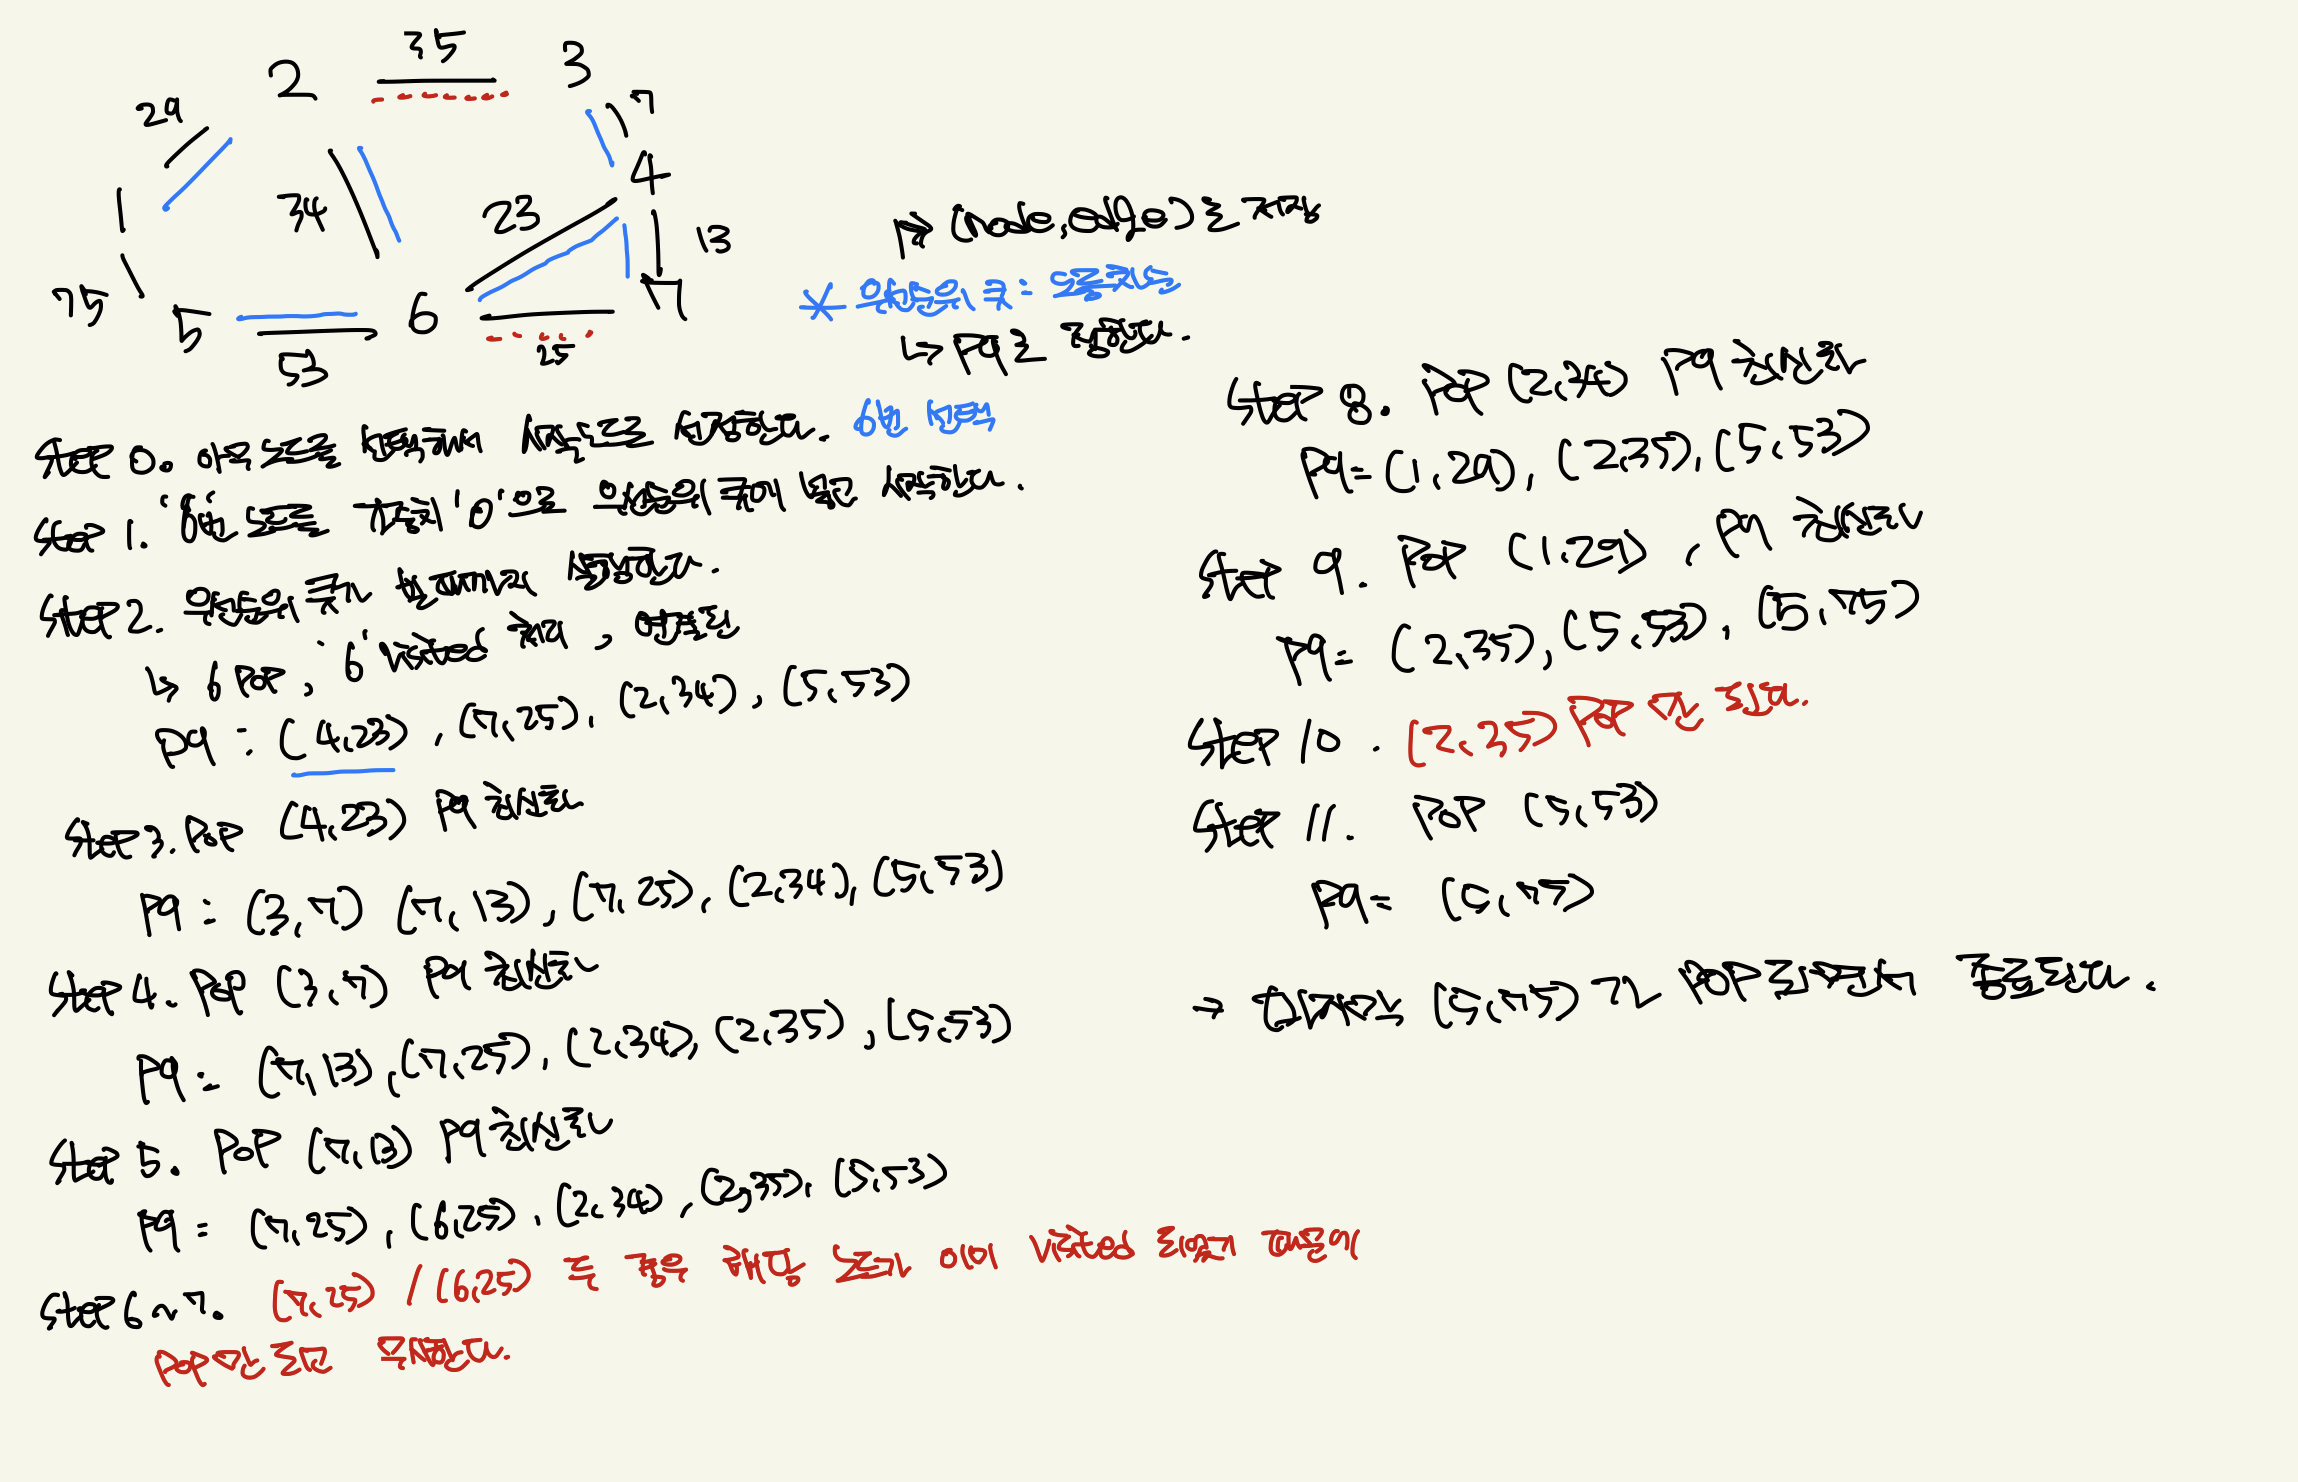 35
2 3
29 7
1 34 23 4 13
75 5 6 7
53 25
→ (node, edge)로 저장
* 우선순위 큐 : 오름차순
↳ Pq로 칭한다.
Step 0. 아무 노드를 선택해서 시작노드로 선정한다. 6번 선택
Step 1. '6'번 노드를 가중치 '0'으로 우선순위 큐에 넣고 시작한다.
Step 2. 우선순위 큐가 빌 때까지 실행한다.
↳ 6 POP, '6' visited 처리, 연결된
Pq : (4,23), (7,25), (2,34), (5,53)
Step 3. POP (4,23) Pq 최신화
Pq = (3,7) (7,13), (7,25), (2,34), (5,53)
Step 4. POP (3,7) Pq 최신화
Pq = (7,13), (7,25), (2,34), (2,35), (5,53)
Step 5. POP (7,13) Pq 최신화
Pq = (7,25), (6,25), (2,34), (2,35), (5,53)
Step 6~7. (7,25) / (6,25) 두 경우 해당 노드가 이미 visited 되었기 때문에
POP만 되고 무시한다.
Step 8. POP (2,34) Pq 최신화
Pq = (1,29), (2,35), (5,53)
Step 9. POP (1,29), Pq 최신화
Pq = (2,35), (5,53), (5,75)
Step 10. (2,35) POP만 된다.
Step 11. POP (5,53)
Pq = (5,75)
→ 마지막 (5,75)가 POP 되면서 종료된다.